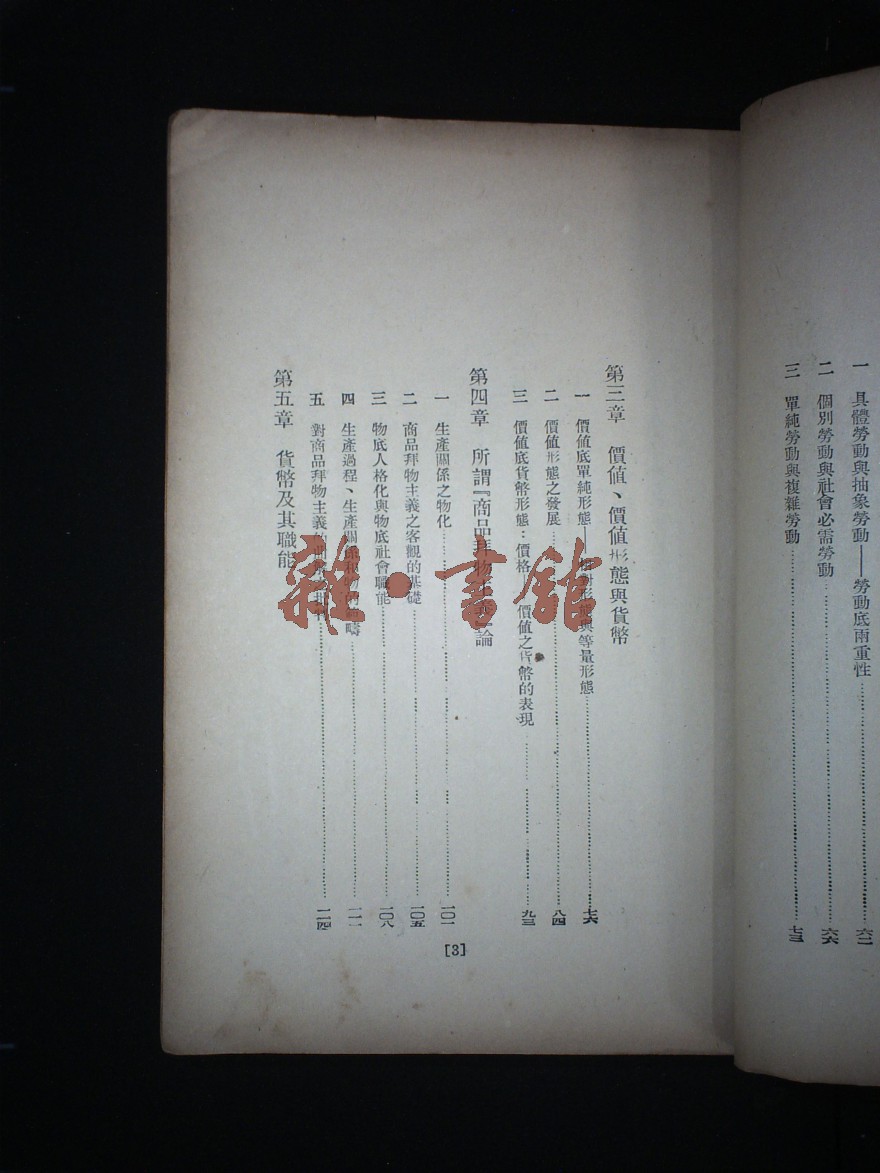 一 具體勞動與抽象勞動——勞動底兩重性……六二
二 個別勞動與社會必需勞動……六六
三 單純勞動與複雜勞動……七三
第三章 價值、價值形態與貨幣
一 價值底單純形態——相對形態與等量形態……七六
二 價值形態之發展……八四
三 價值底貨幣形態：價格——價值之貨幣的表現……九三
第四章 所謂『商品拜物主義』論
一 生產關係之物化……一〇一
二 商品拜物主義之客觀的基礎……一〇五
三 物底人格化與物底社會職能……一〇八
四 生產過程、生產關係和物的範疇……一一一
五 對商品拜物主義的……一一四
第五章 貨幣及其職能
[3]
雜·書館